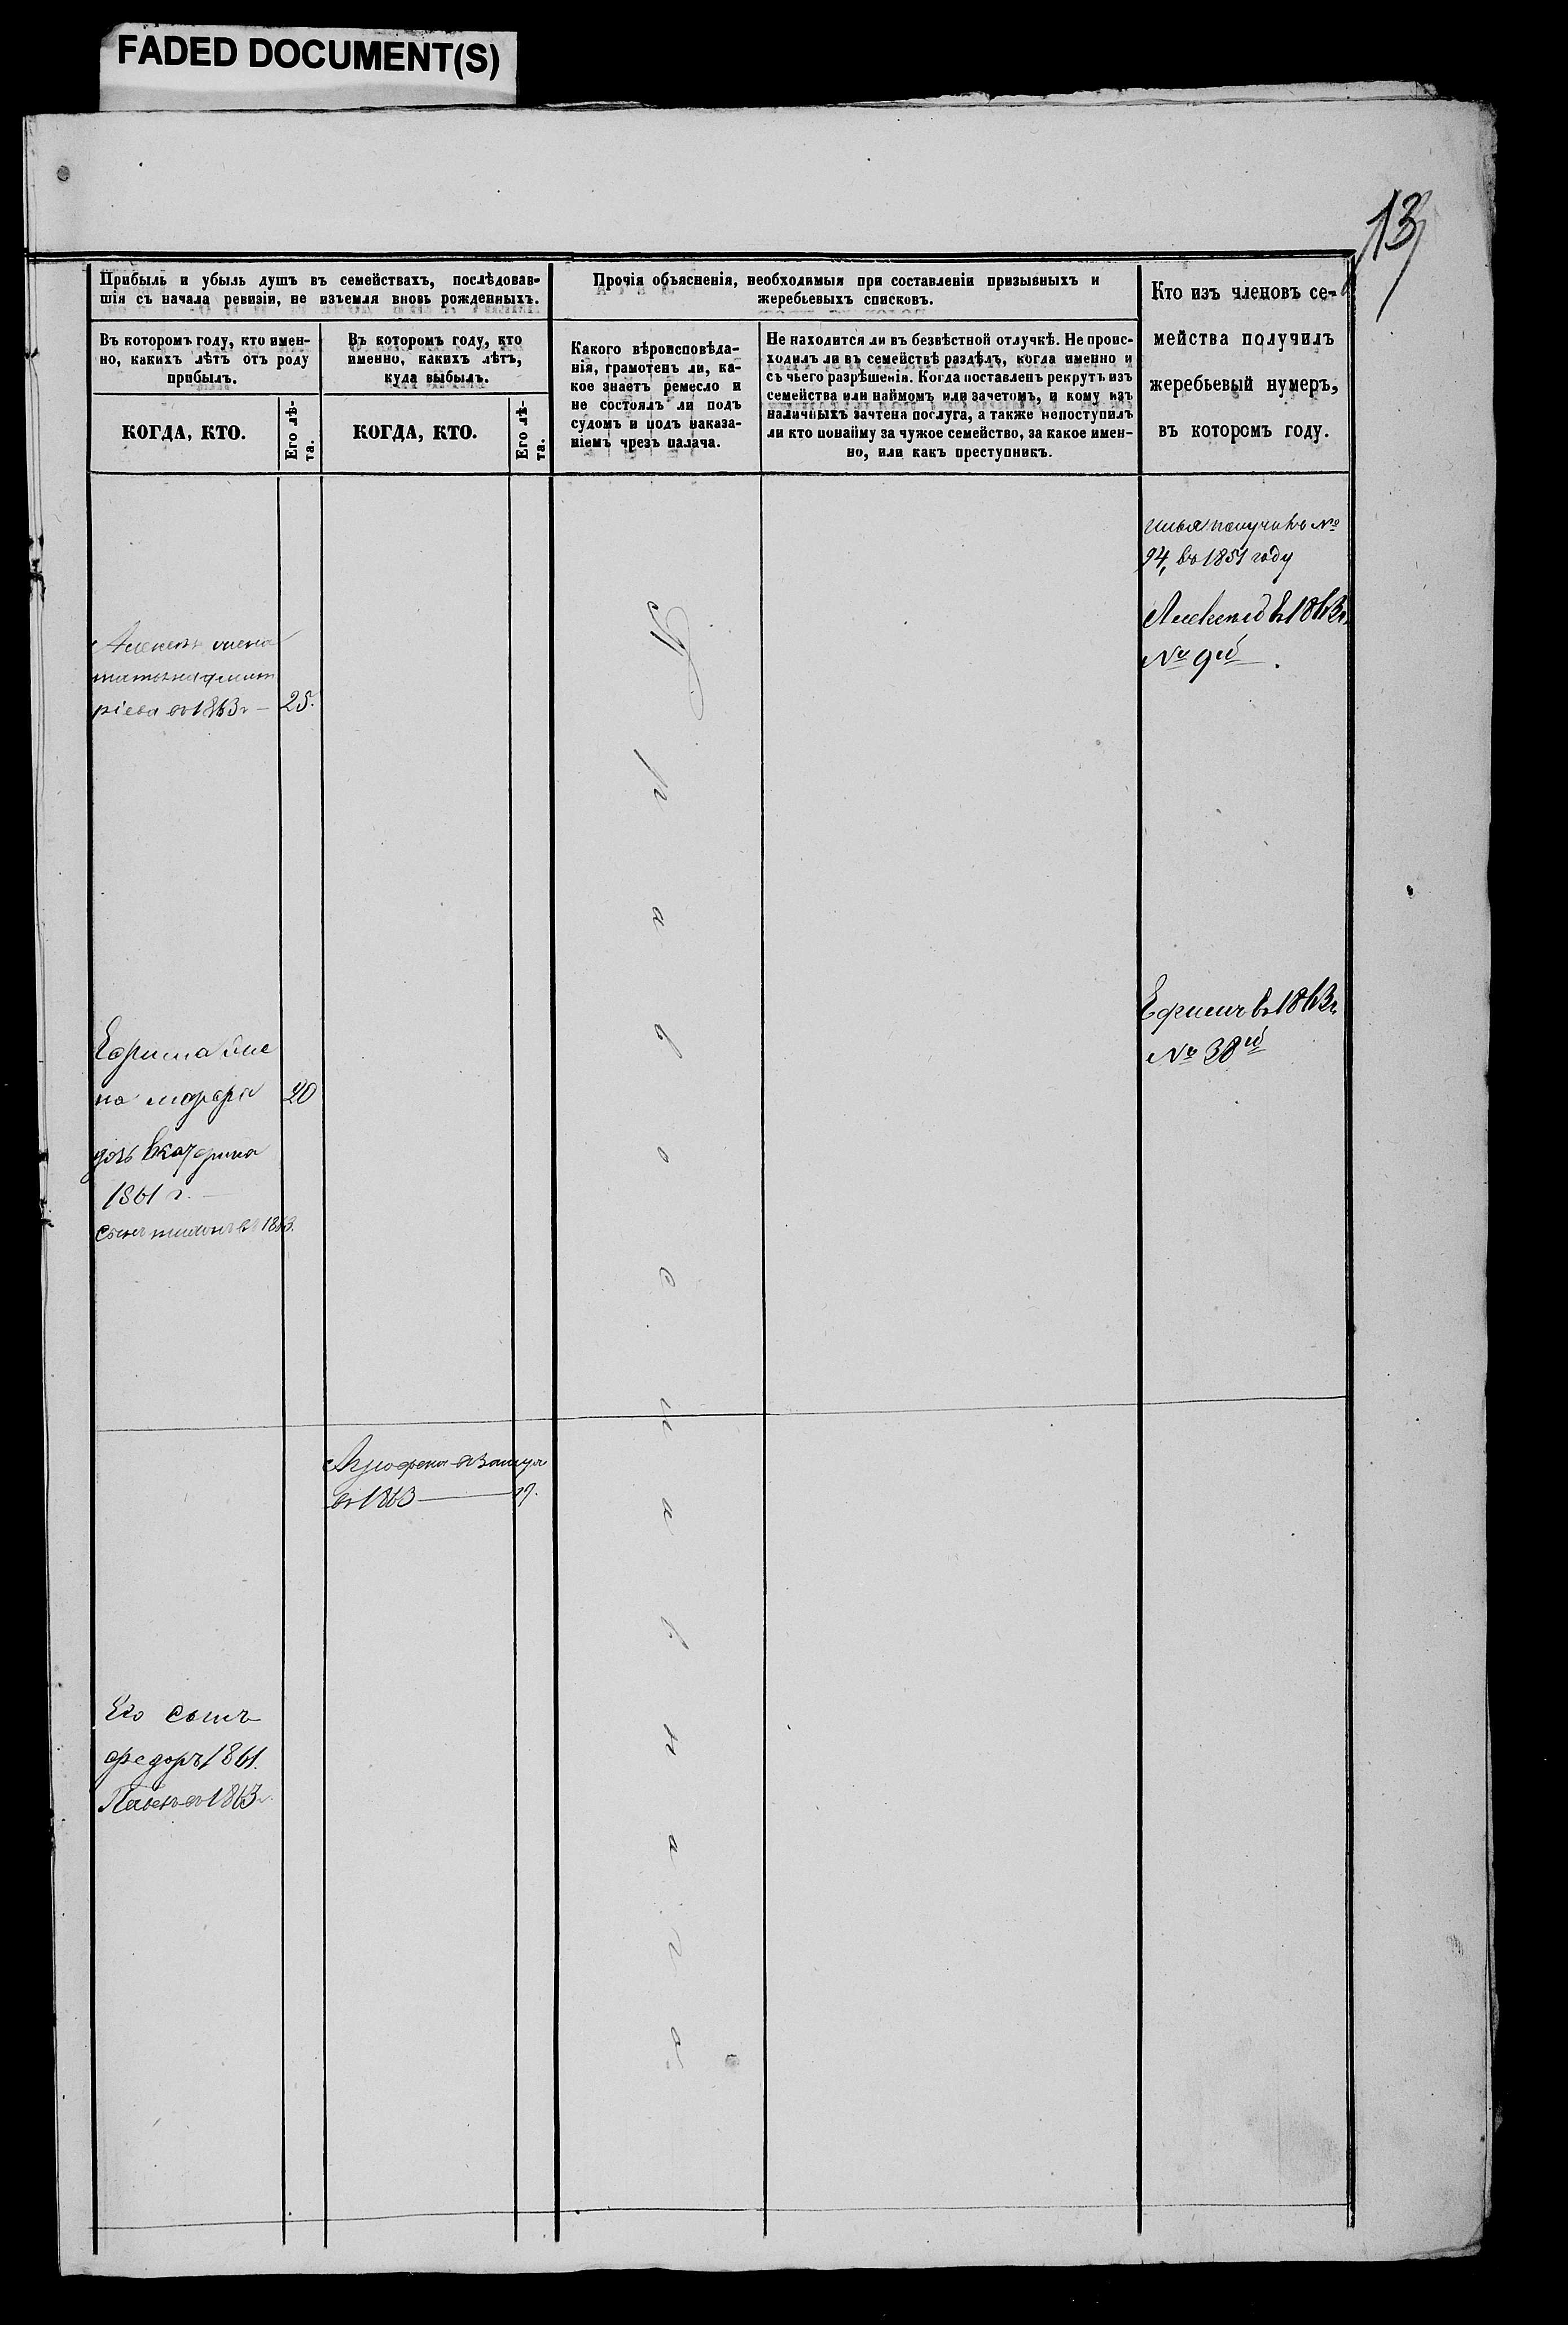 FADED DOCUMENT(S)
13
Прибыль и убыль душъ въ семействахъ, послѣдовав-
шія съ начала ревизіи, не изъемля вновь рожденныхъ.
Въ которомъ году, кто имен-
но, какихъ лѣтъ отъ роду
прибылъ.
КОГДА, КТО.
Его лѣ-
та.
Въ которомъ году, кто
именно, какихъ лѣтъ,
куда выбылъ.
КОГДА, КТО.
Его лѣ-
та.
Прочія объясненія, необходимыя при составленіи призывныхъ и
жеребьевыхъ списковъ.
Какого вѣроисповѣда-
нія, грамотенъ ли, ка-
кое знаетъ ремесло и
не состоялъ ли подъ
судомъ и подъ наказа-
ніемъ чрезъ палача.
Не находится ли въ безвѣстной отлучкѣ. Не проис-
ходилъ ли въ семействѣ раздѣлъ, когда именно и
съ чьего разрѣшенія. Когда поставленъ рекрутъ изъ
семейства или наймомъ или зачетомъ, и кому изъ
наличныхъ зачтена послуга, а также непоступилъ
ли кто понайму за чужое семейство, за какое имен-
но, или какъ преступникъ.
Кто изъ членовъ се-
мейства получилъ
жеребьевый нумеръ,
въ которомъ году.
Илья получилъ №
94, въ 1851 году
Алексѣй въ 1863 г.
№ 9й.
жена
въ 1863 г — 25.
Ефимъ въ 1863 г.
№ 38й
Ефима же
на Марфа 20
дочь Екатерина
1861 г.
Сынъ въ 1863.
въ замуж
въ 1863 —
Его сынъ
Федоръ 1861.
Павелъ въ 1863 г.
Православнаго